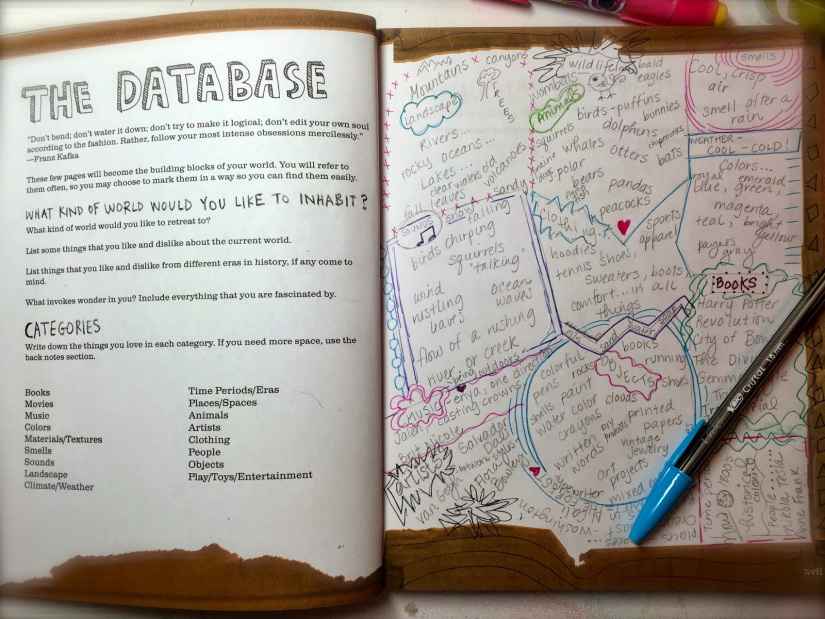 THE DATABASE
"Don't bend; don't water it down; don't try to make it logical; don't edit your own soul
according to the fashion. Rather, follow your most intense obsessions mercilessly."
—Franz Kafka
These few pages will become the building blocks of your world. You will refer to
them often, so you may choose to mark them in a way so you can find them easily.
WHAT KIND OF WORLD WOULD YOU LIKE TO INHABIT?
What kind of world would you like to retreat to?
List some things that you like and dislike about the current world.
List things that you like and dislike from different eras in history, if any come to
mind.
What invokes wonder in you? Include everything that you are fascinated by.
CATEGORIES
Write down the things you love in each category. If you need more space, use the
back notes section.
Books
Movies
Music
Colors
Materials/Textures
Smells
Sounds
Landscape
Climate/Weather
Time Periods/Eras
Places/Spaces
Animals
Artists
Clothing
People
Objects
Play/Toys/Entertainment
Mountains canyons
TREES
Landscape
Rivers...
rocky oceans...
Lakes...
clear waters old
volcanoes
fall leaves
sandy
wildlife
bald
eagles
wombats
Animals
birds-puffins
bunnies
dolphins
squirrels
whales
otters
chipmunks
bats
mine
dog
polar
bears
fish
pandas
peacocks
snow falling
birds chirping
squirrels
"talking"
wind
rustling
leaves
ocean
waves
flow of a rushing
river or creek
being outdoors
sports
apparel
hoodies
tennis shoes,
sweaters, boots
comfort... in all
things
smells
Cool, crisp
air
smell after a
rain
WEATHER-
COOL-COLD!
Colors...
royal
blue,
emerald
green,
magenta,
teal, bright
yellow
paynes
gray
BOOKS
Harry Potter
Revolution
City of
The
MUSIC
enya, one direction
casting crowns
Britt Nicole
Artists
Salvador
Dali
van Gogh
sand
water
books
OBJECTS
colorful
pens
rocks
running
shoes
shells
paint
clouds
water color
crayons
printed
papers
DIY
Products
vintage
jewelry
written
words
art
projects
typewriter
mixed
Washington
places
historical
People.....
Anne Frank
BIC Cristal 1.6mm